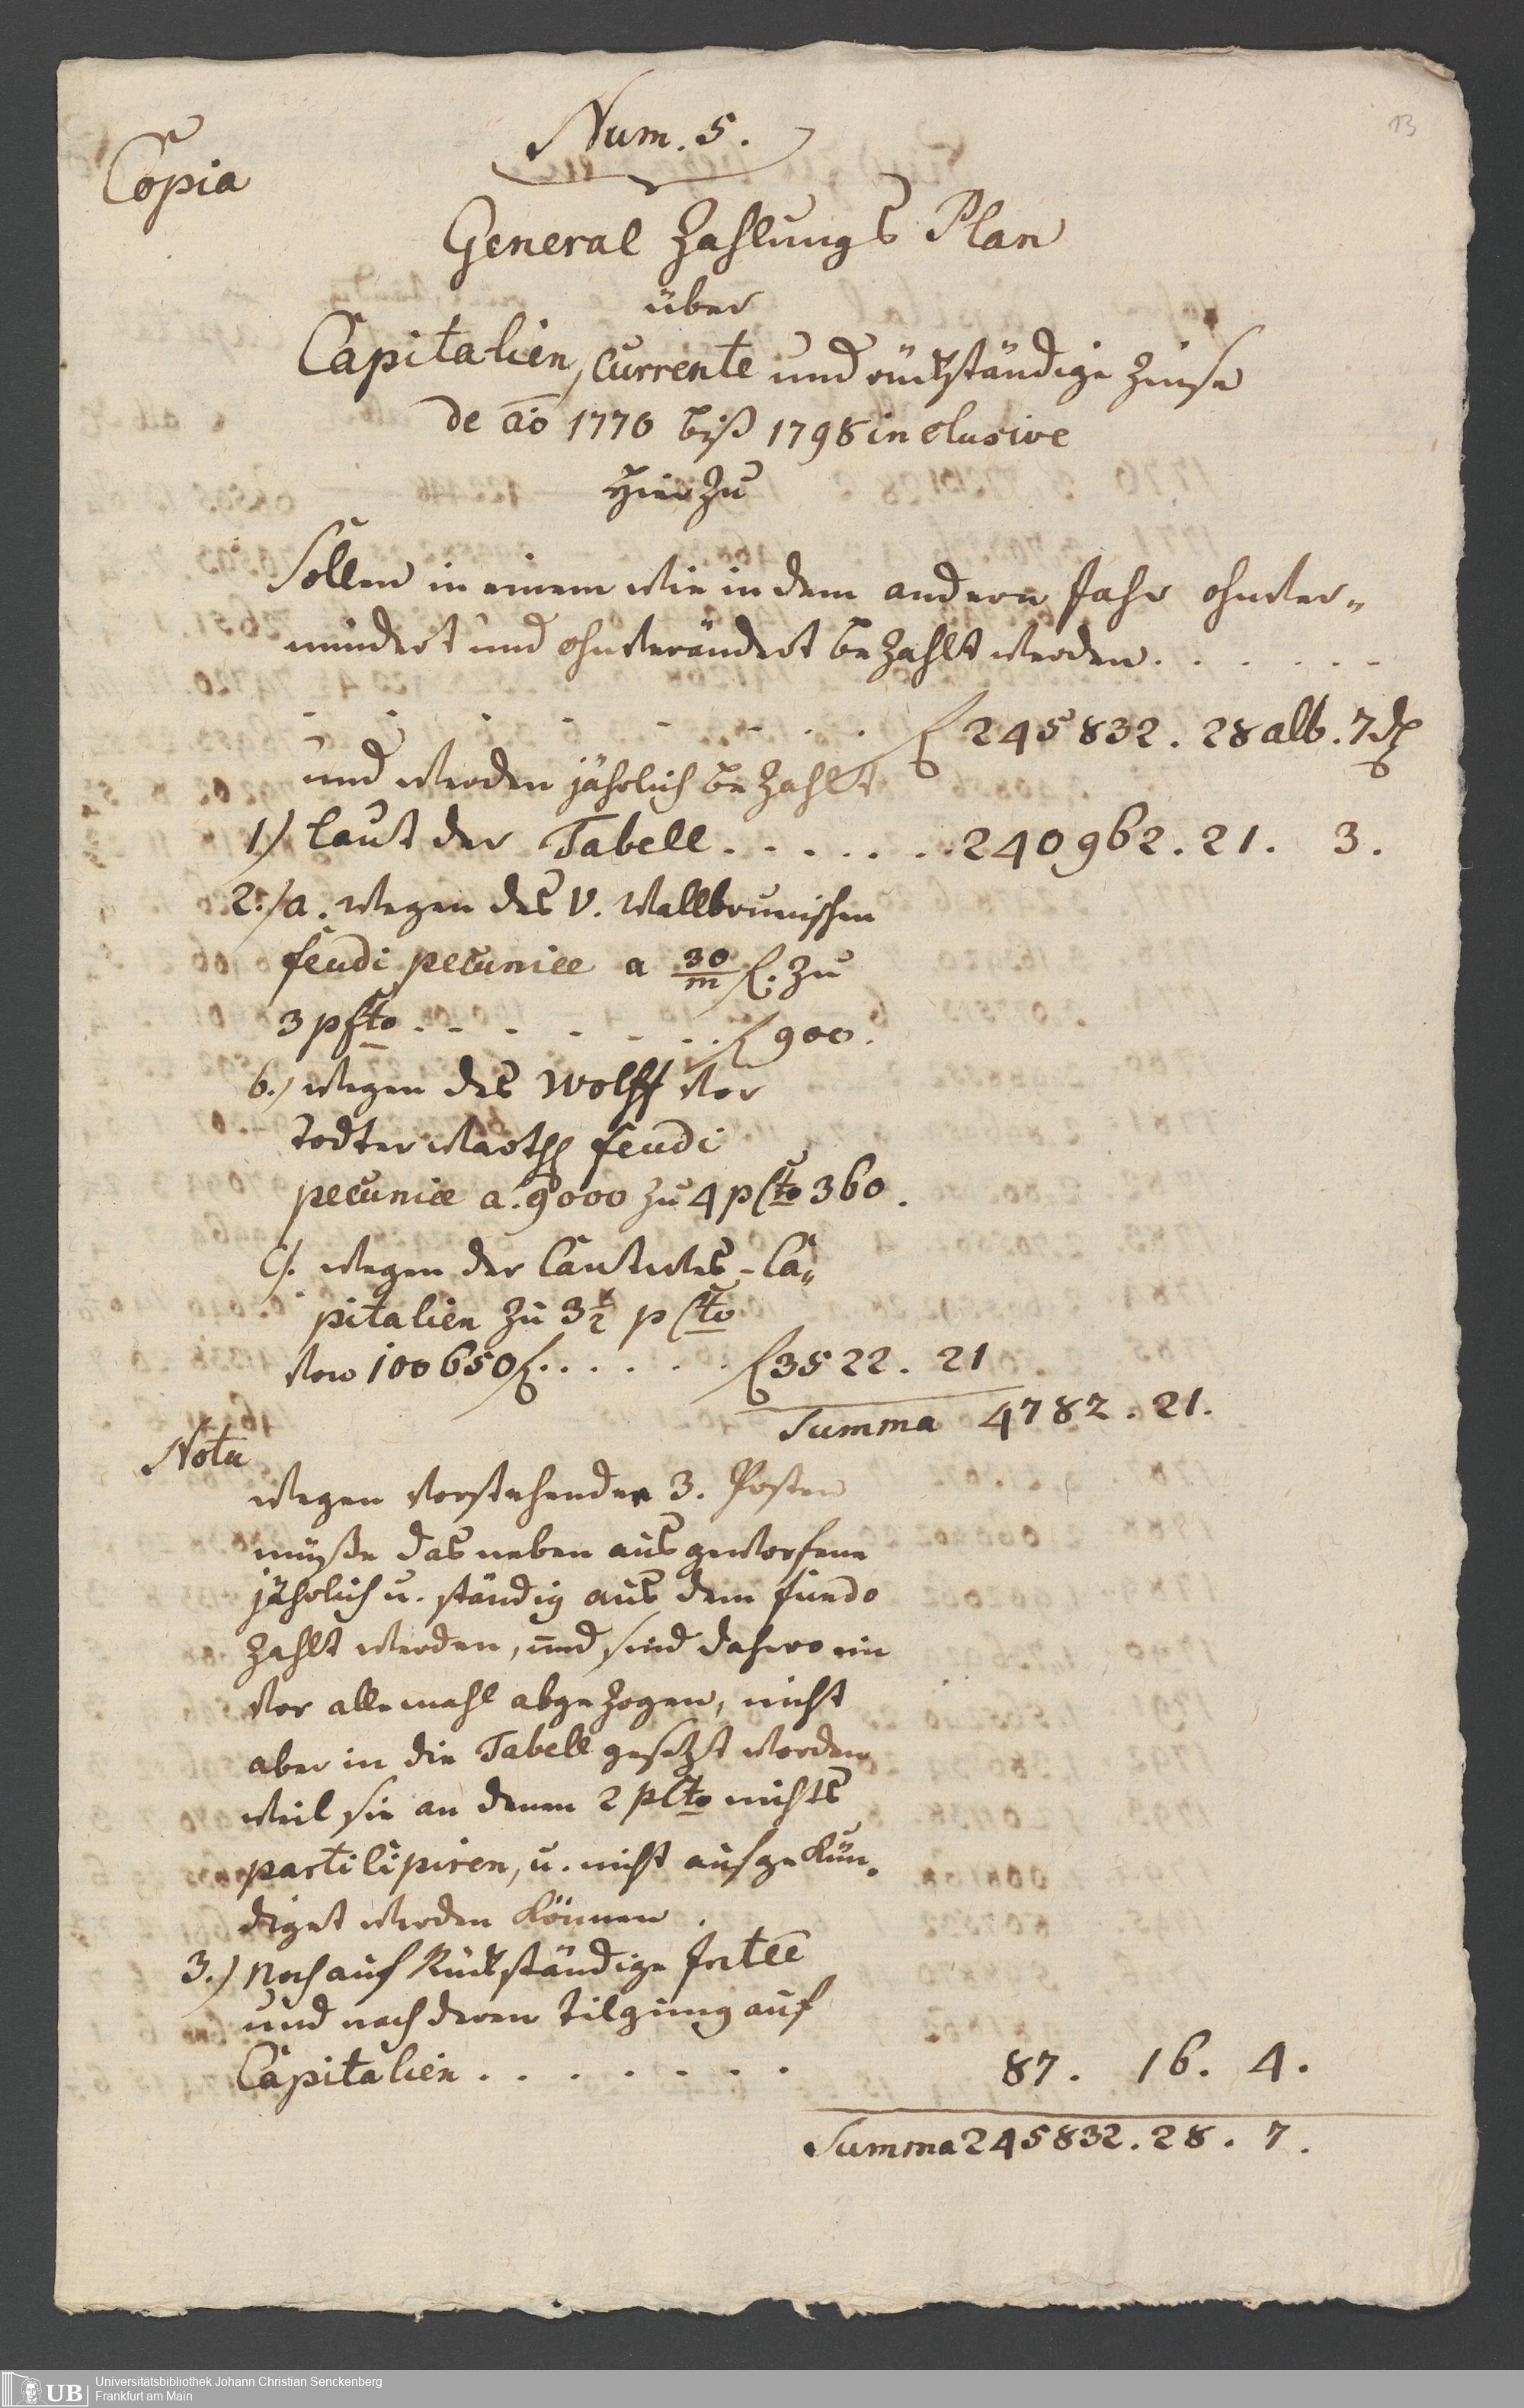 13
Num. 5.
Copia
General Zahlungs Plan
über
Capitalien, Currente und rückständige Zinse
de aõ 1770 biß 1798 inclusive
Hierzu
Sollen in einem wie in dem andern Jahr ohnver„
mindert und ohnverändert bezahlt werden . . . . . .
. . . . . . . . f 245832. 28 alb. 7 d
und werden jährlich bezahlt
1) laut der Tabell . . . . . . 240962. 21. 3.
2./a. wegen des V. Wallbrunischen
feudi pecuniae a 30/m f. zu
3 pCto . . . . . . . f 900.
b.) wegen des Wolff von
Todtenwarth feudi
pecuniae a. 9000 zu 4 pCto 360.
c/. wegen der Cautions-Ca„
pitalien zu 3½ pCto
von 100650 f. . . . . . f 3522. 21
Summa 4782. 21.
Nota
wegen vorstehender 3. Posten
müßte das neben ausgeworfene
jährlich u. ständig aus dem fundo
zahlt werden, und sind dahero ein
vor allemahl abgezogen, nicht
aber in die Tabell gesetzt worden
weil sie an denen 2 pCto nichts
participiren, u. nicht aufgekün„
diget werden können.
3.) Noch auf Rückständige
und nach deren Tilgung auf
Capitalien . . . . . . . 87. 16. 4.
Summa 245832. 28. 7.
UB
Universitätsbibliothek Johann Christian Senckenberg
Frankfurt am Main